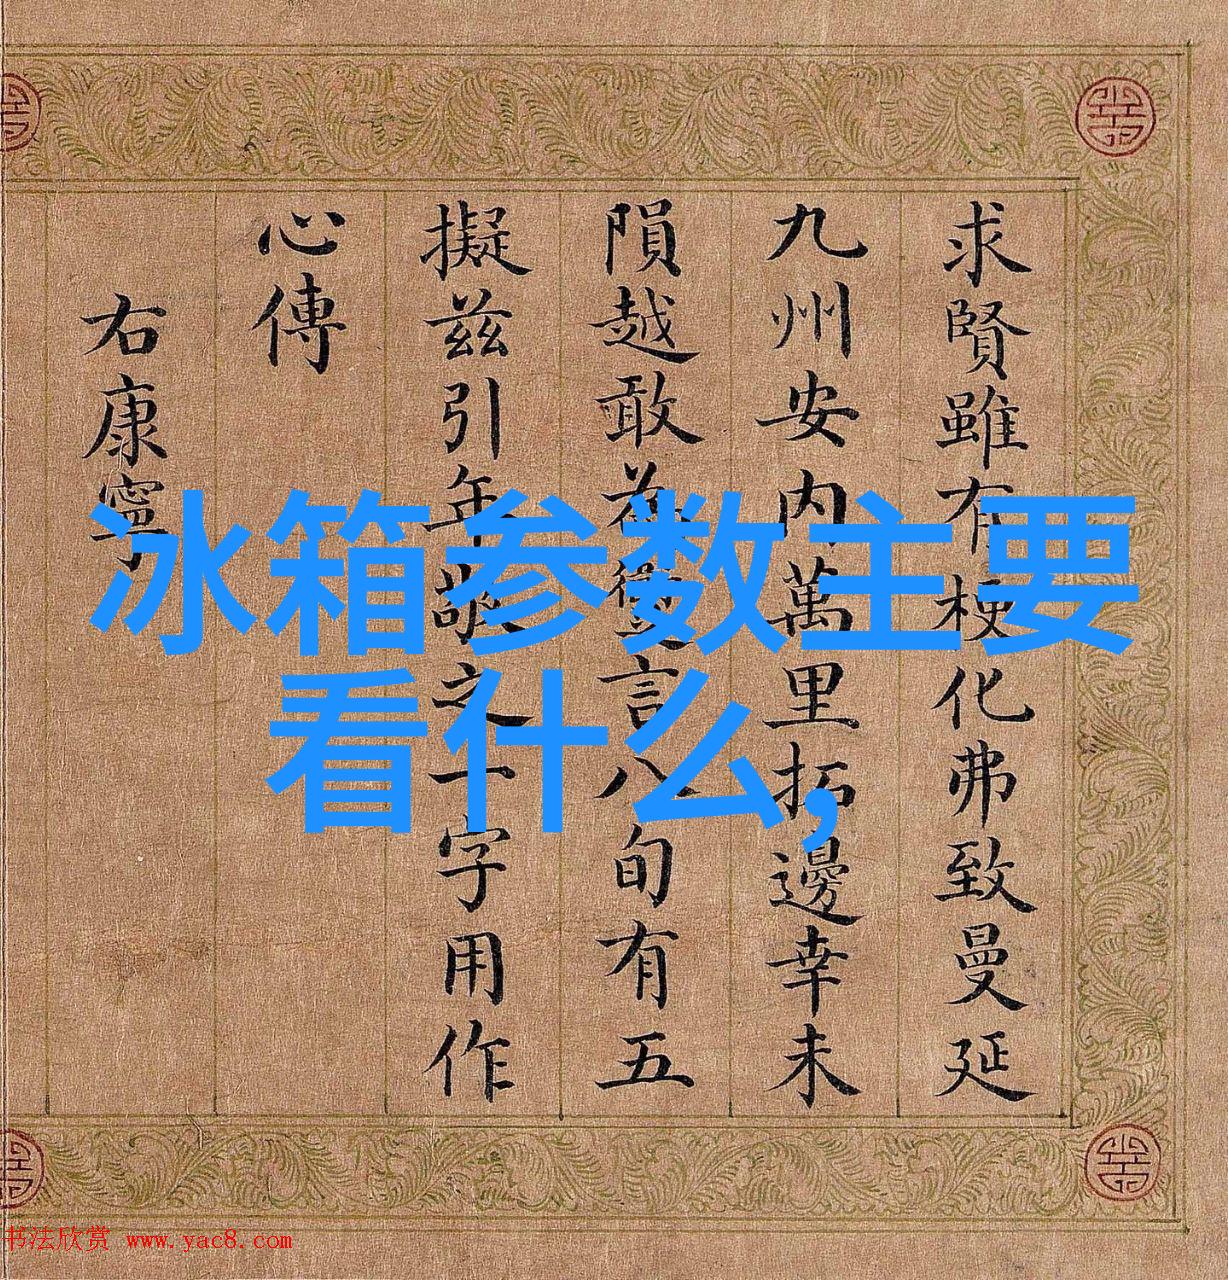 求賢雖有梗化弗致曼延
九州安内萬里拓邊幸未
隕越敢為言八旬有五
擬茲引年敬之一字用作
心傳
右康寧
冰箱参数主要
看什么,
书法欣赏 www.yac8.com